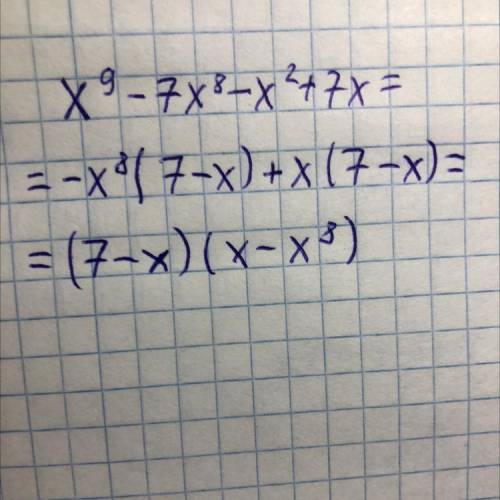 x⁹ - 7x⁸ - x² + 7x =
= -x⁸(7-x) + x(7-x) =
= (7-x)(x-x⁸)